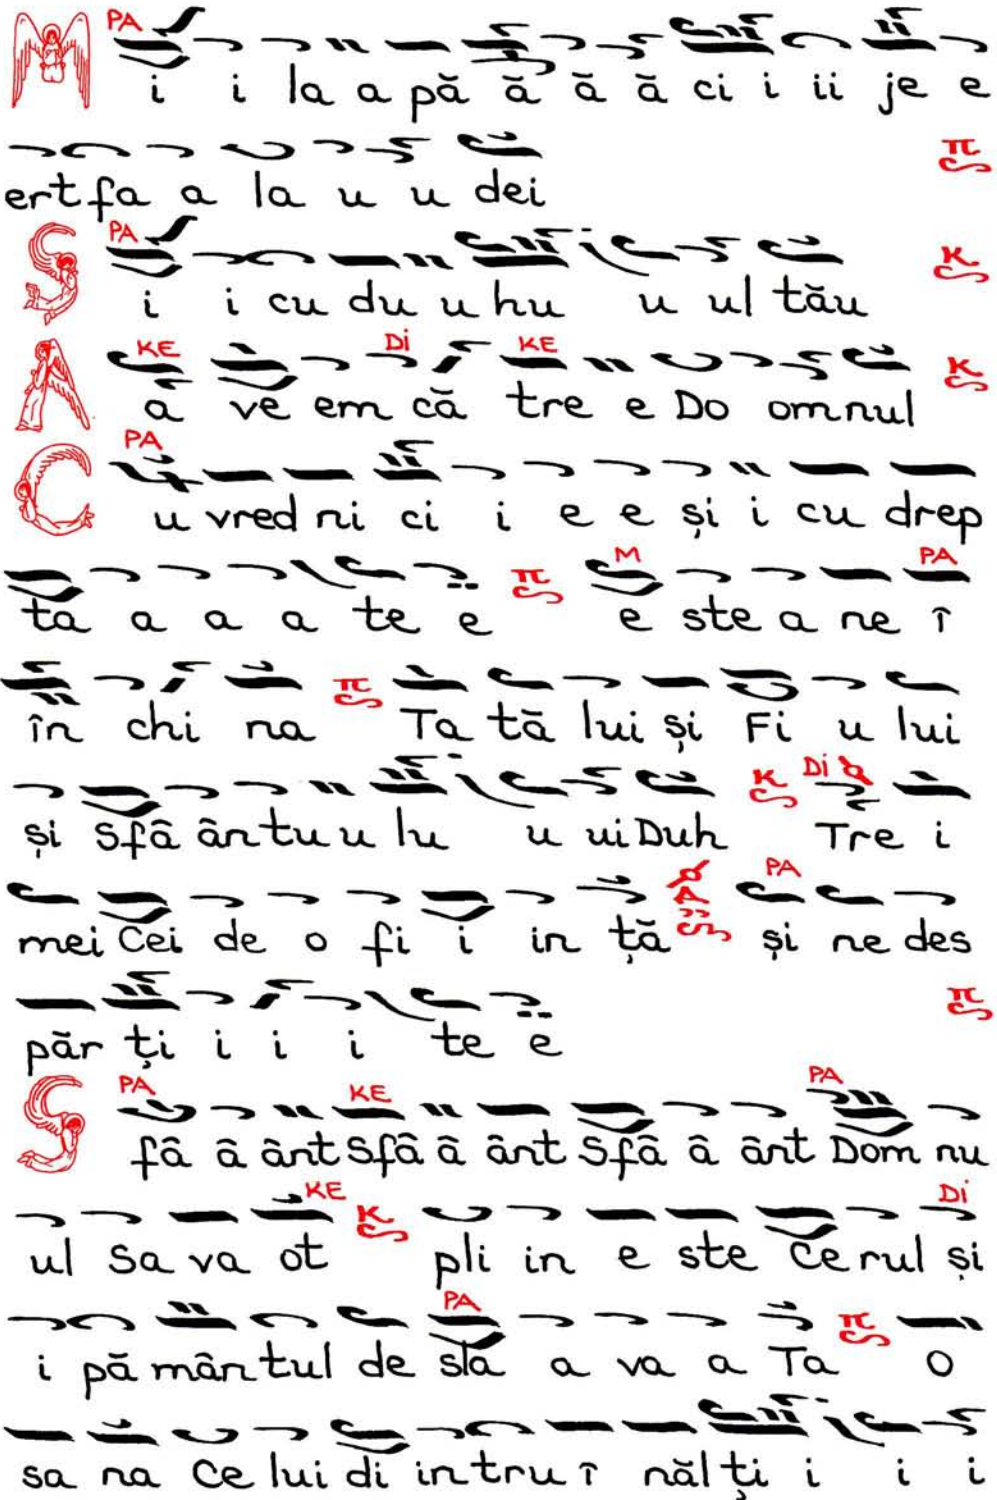 PA
M i i la a pă ă ă ă ci i ii je e
ert fa a la u u dei π
PA
S i i cu du u hu u ul tău K
KE Di KE
A a ve em că tre e Do omnul K
PA
C u vred ni ci i e e și i cu drep
M PA
ta a a a te e π e ste a ne î
în chi na π Ta tă lui și Fi u lui
K Di
și Sfâ ân tu u lu u ui Duh Tre i
PA
mei Cei de o fi i in ță și ne des
păr ți i i i te e π
PA KE PA
S fâ â ânt Sfâ â ânt Sfâ â ânt Dom nu
KE K Di
ul Sa va ot pli in e ste Ce rul și
PA
i pă mân tul de sla a va a Ta π O
sa na Ce lui di in tru î năl ți i i i